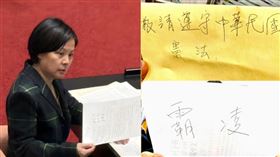 敬請遵守中華民國
憲法
霸凌